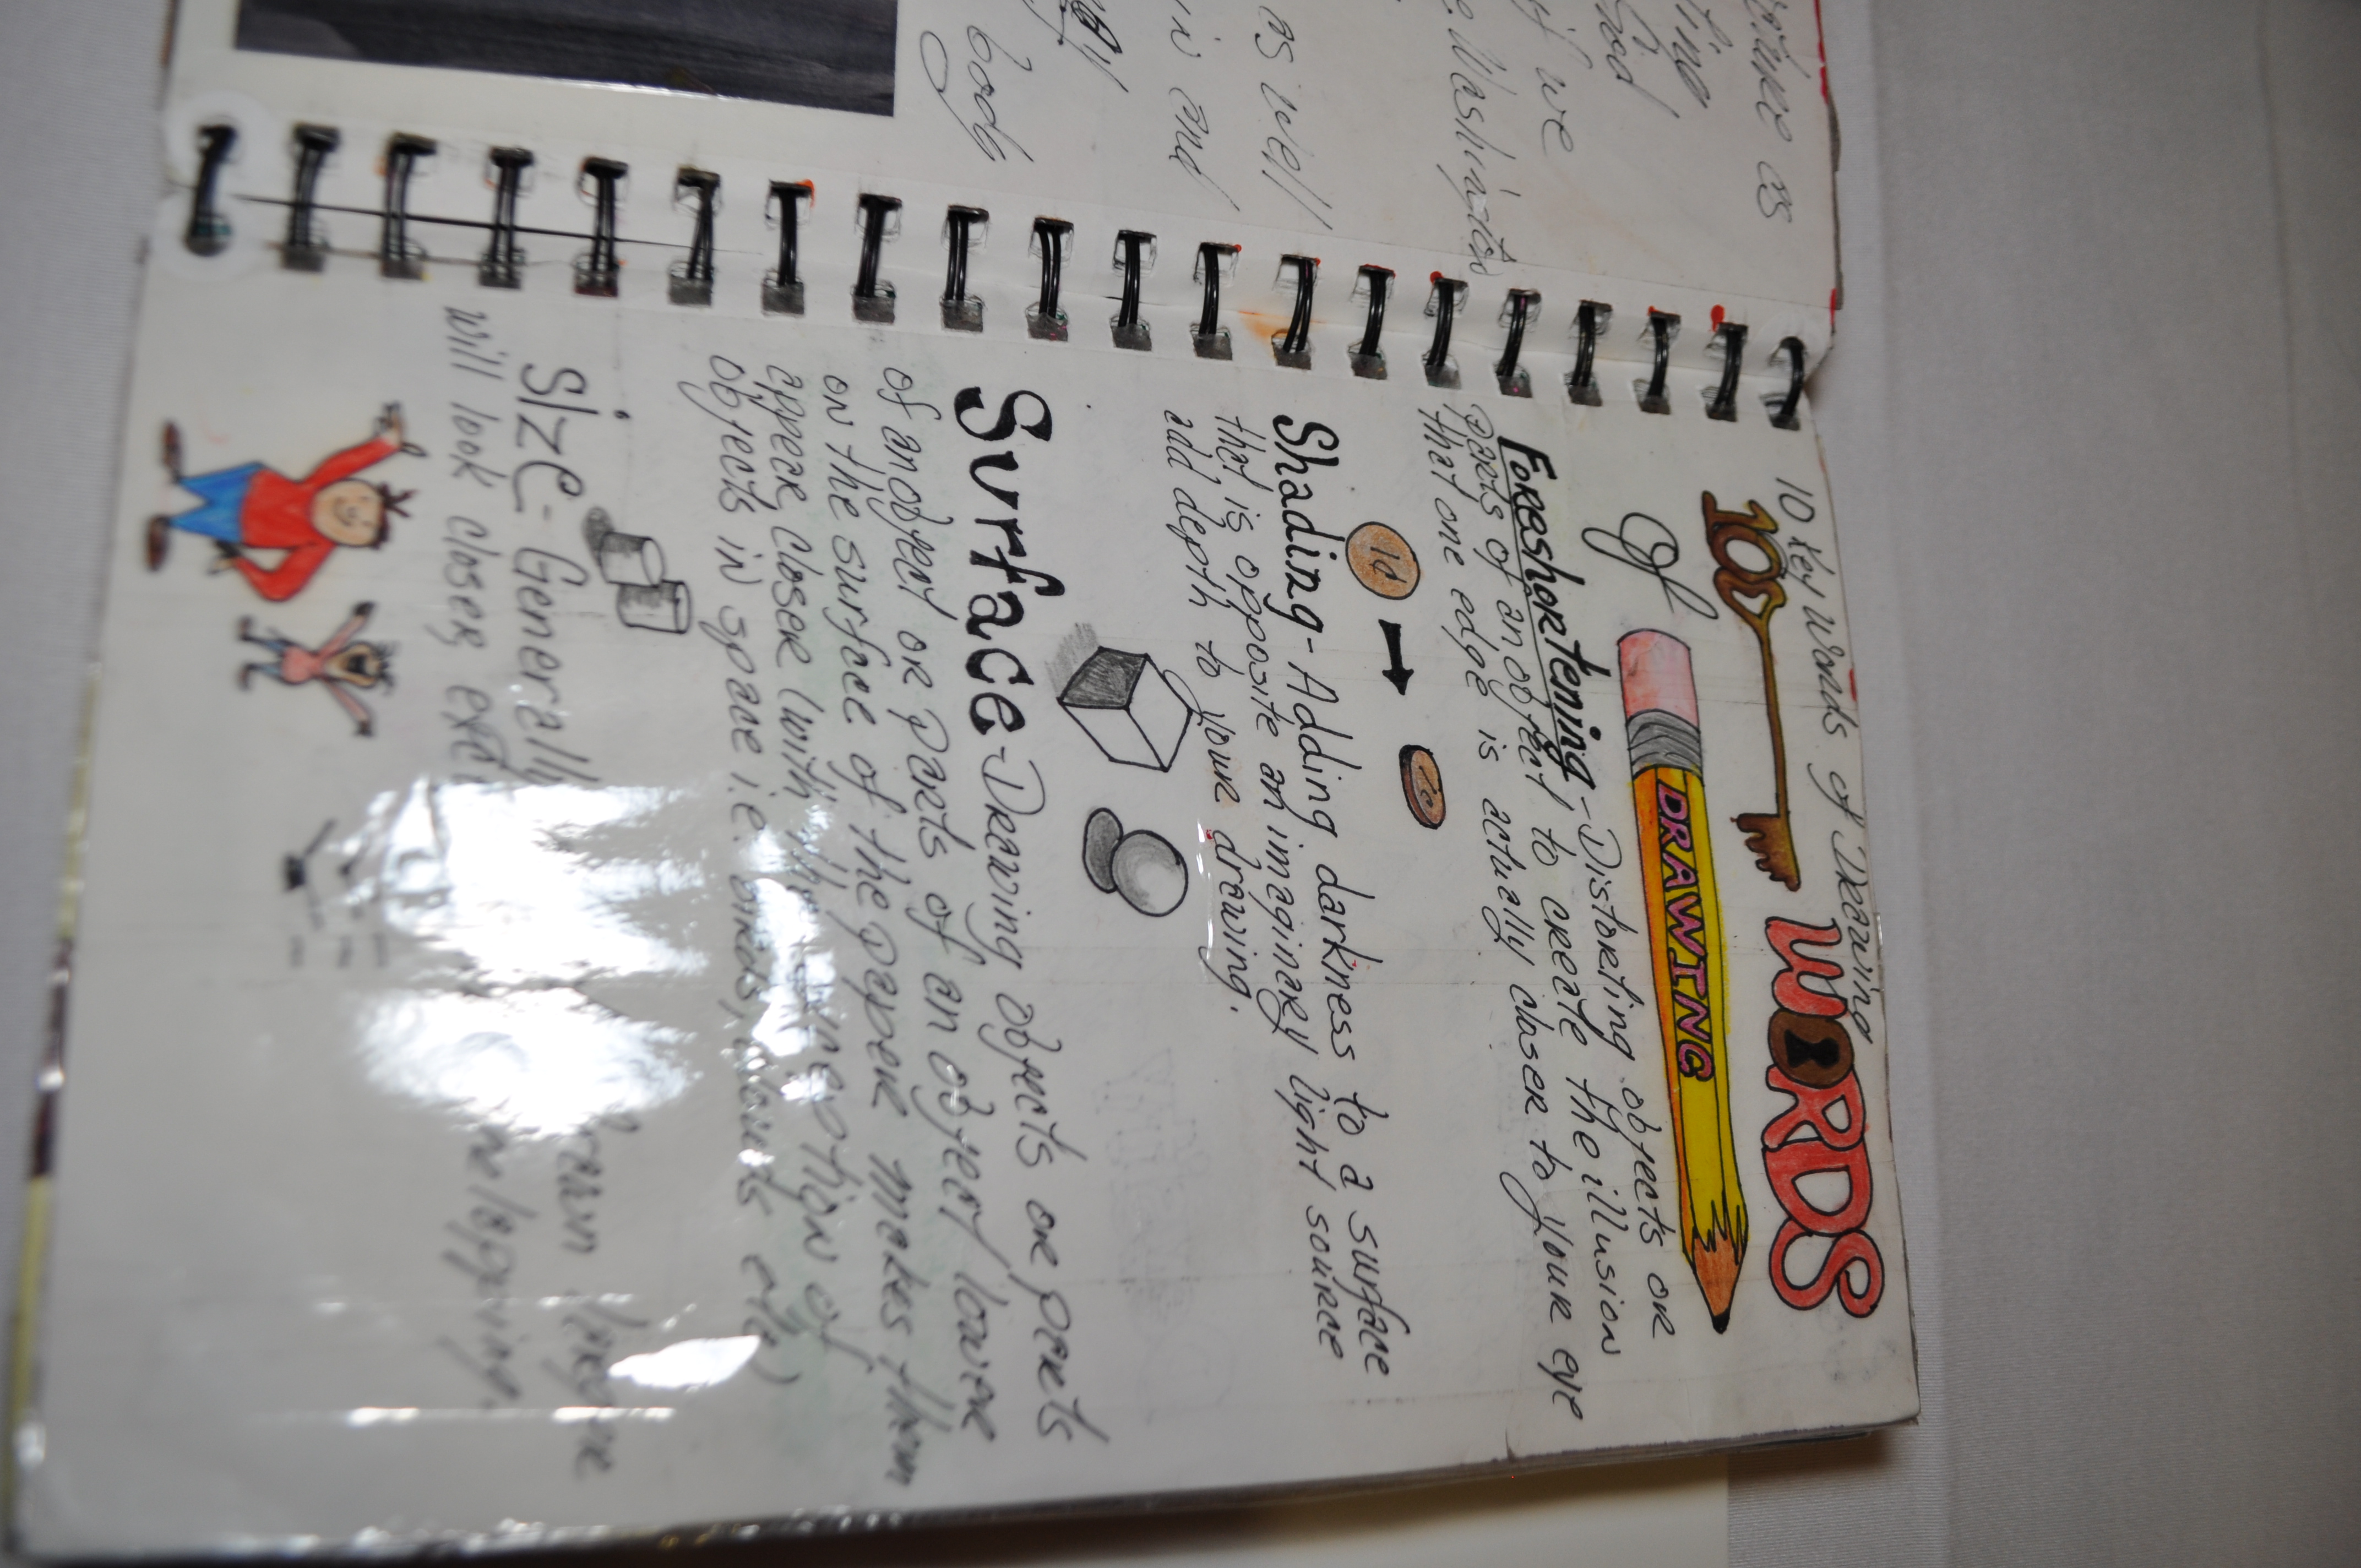 ortune as
ting
hod
if we
e. Washington
as well
in and
body
10 key words of Drawing
10 WORDS
of DRAWING
Foreshortening - Distorting objects or
parts of an object to create the illusion
that one edge is actually closer to your eye
1¢
1¢
Shading - Adding darkness to a surface
that is opposite an imaginary light source
add depth to your drawing.
Surface - Drawing objects or parts
of an object or parts of an object lower
on the surface of the paper makes them
appear closer (with the exception of
objects in space i.e. birds, clouds etc)
Size - Generally drawn larger
will look closer